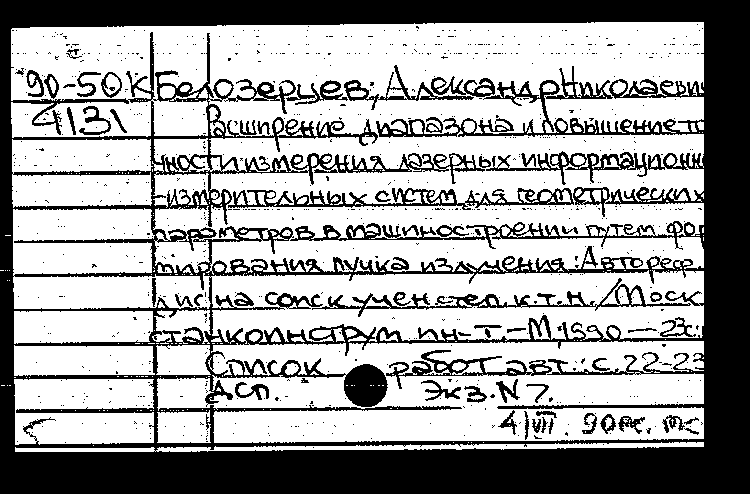 90-50К Белозерцев, Александр Николаевич
4131 Расширение диапазона и повышение то
чности измерения лазерных информационно
-измерительных систем для геометрических
параметров в машиностроении путем фор
мирования пучка излучения: Автореф.
дис на соиск учен степ. к.т.н. / Моск
станкоинструм ин-т. - М, 1990 - 23с.:
Список работ авт.: с. 22-23
ДСП. Экз. N 7.
4/VII. 90